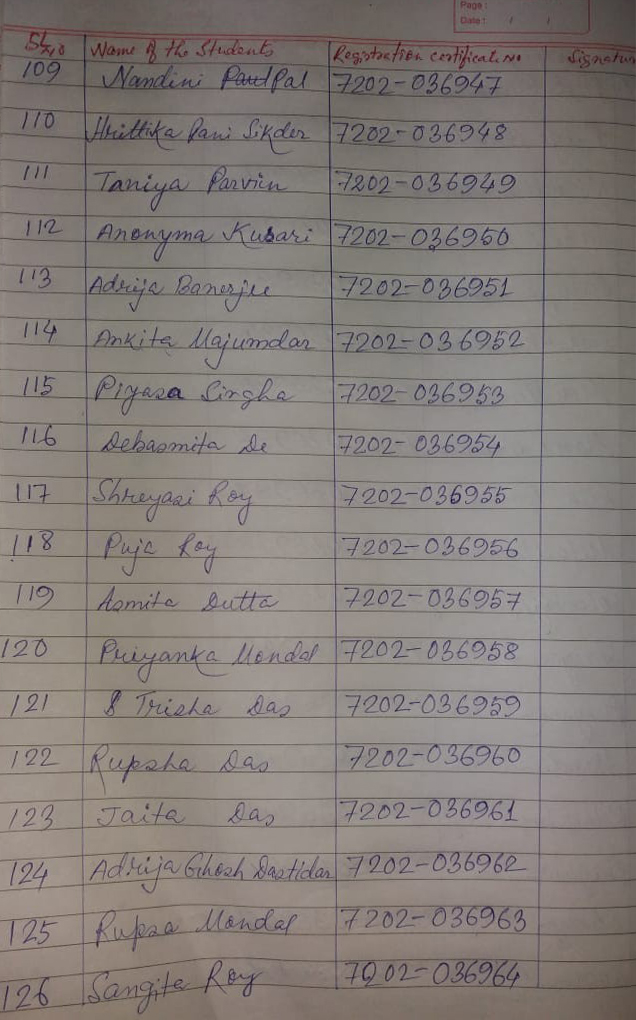 Page :
Date : / /
Sl. no Name of the Students Registration certificate No Signature
109 Nandini Paul Pal 7202-036947
110 Hrittika Rani Sikder 7202-036948
111 Taniya Parvin 7202-036949
112 Anonyma Kusari 7202-036950
113 Adrija Banerjee 7202-036951
114 Ankita Majumdar 7202-036952
115 Piyasa Singha 7202-036953
116 Debasmita De 7202-036954
117 Shreyasi Roy 7202-036955
118 Puja Roy 7202-036956
119 Asmita Dutta 7202-036957
120 Priyanka Mondal 7202-036958
121 S Trisha Das 7202-036959
122 Rupsha Das 7202-036960
123 Jaita Das 7202-036961
124 Adrija Ghosh Dastidar 7202-036962
125 Rupsa Mondal 7202-036963
126 Sangita Roy 7202-036964